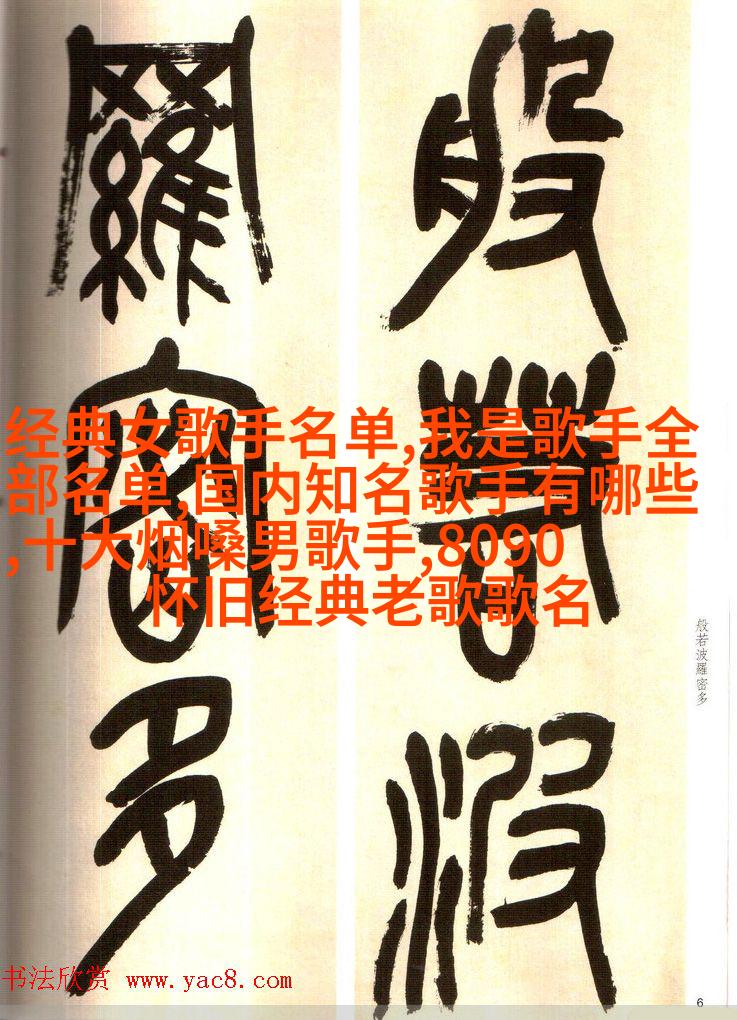 般若波
羅密多
经典女歌手名单,我是歌手全
部名单,国内知名歌手有哪些
,十大烟嗓男歌手,8090
怀旧经典老歌歌名
般若波羅密多
书法欣赏 www.yac8.com
6